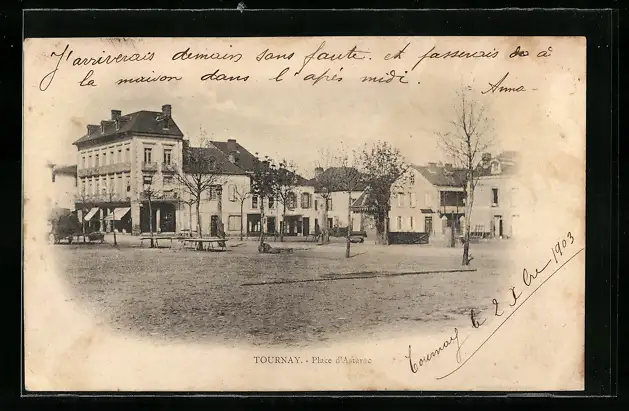 J'arriverais demain sans faute. et passerais à
la maison dans l'après midi.
Anna
TOURNAY. - Place d'Astarac
Tournay le 2 Xbre 1903